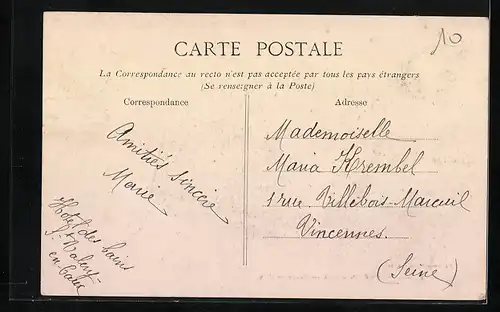 10
CARTE POSTALE
La Correspondance au recto n'est pas acceptée par tous les pays étrangers
(Se renseigner à la Poste)
Correspondance
Amitiés sincère
Marie
Hotel des bains
St Valery-
en-Caux
Adresse
Mademoiselle
Maria Krembel
1 rue Villebois-Mareuil
Vincennes.
(Seine)